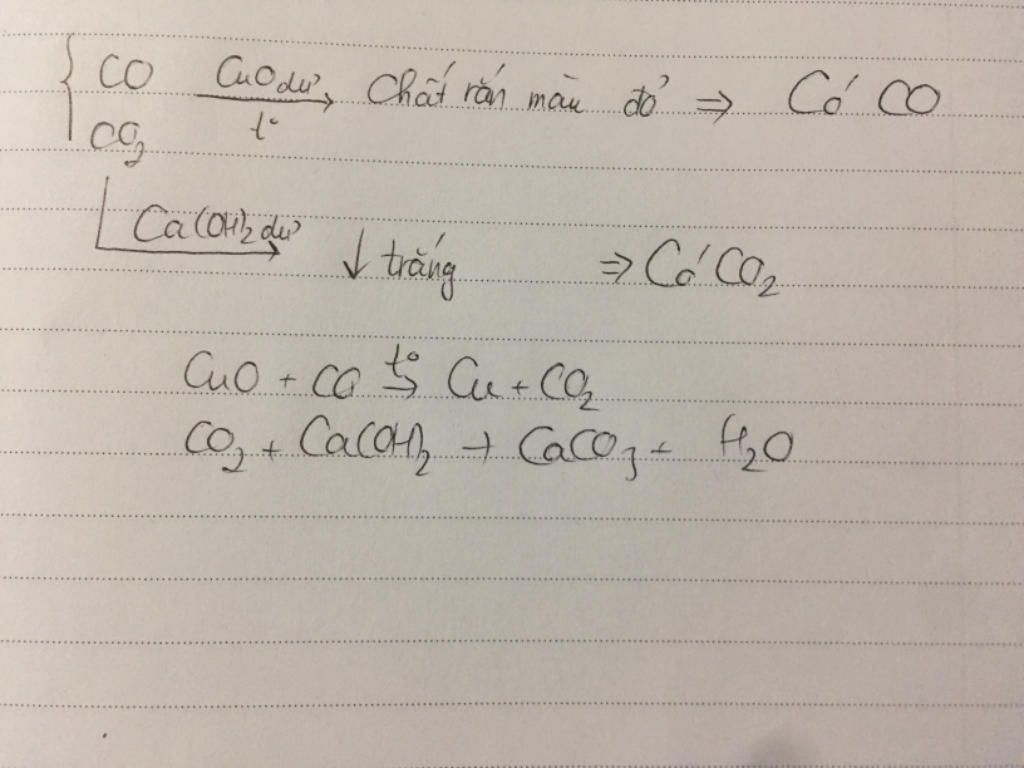 { CO CuO dư → t° Chất rắn màu đỏ ⇒ Có CO
CO₂
Ca(OH)₂ dư → ↓ trắng ⇒ Có CO₂
CuO + CO t°→ Cu + CO₂
CO₂ + Ca(OH)₂ → CaCO₃ + H₂O